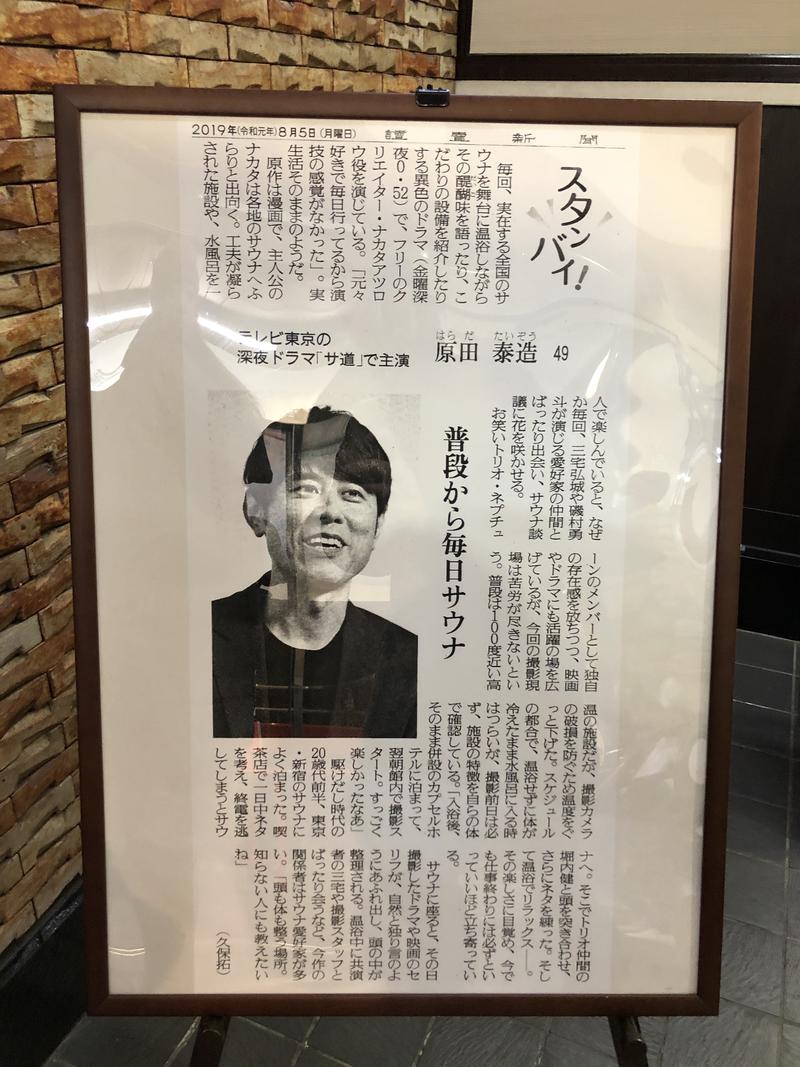 2019年(令和元年)8月5日(月曜日)
讀賣新聞
スタンバイ!
毎回、実在する全国のサ
ウナを舞台に温浴しながら
その醍醐味を語ったり、こ
だわりの設備を紹介したり
する異色のドラマ(金曜深
夜0・52)で、フリーのク
リエイター・ナカタアツロ
ウ役を演じている。「元々
好きで毎日行ってるから演
技の感覚がなかった」。実
生活そのままのようだ。
原作は漫画で、主人公の
ナカタは各地のサウナへふ
らりと出向く。工夫が凝ら
された施設や、水風呂を一
はらだ たいぞう
原田 泰造 49
テレビ東京の
深夜ドラマ「サ道」で主演
普段から毎日サウナ
人で楽しんでいると、なぜ
か毎回、三宅弘城や磯村勇
斗が演じる愛好家の仲間と
ばったり出会い、サウナ談
議に花を咲かせる。
お笑いトリオ・ネプチュ
ーンのメンバーとして独自
の存在感を放ちつつ、映画
やドラマにも活躍の場を広
げているが、今回の撮影現
場は苦労が尽きないとい
う。普段は100度近い高
温の施設だが、撮影カメラ
の破損を防ぐため温度をぐ
っと下げた。スケジュール
の都合で、温浴せずに体が
冷えたまま水風呂に入る時
はつらいが、撮影前日は必
ず、施設の特徴を自らの体
で確認している。「入浴後、
そのまま併設のカプセルホ
テルに泊まって、
翌朝館内で撮影ス
タート。すっごく
楽しかったなあ」
駆けだし時代の
20歳代前半、東京
・新宿のサウナに
よく泊まった。喫
茶店で一日中ネタ
を考え、終電を逃
してしまうとサウ
ナへ。そこでトリオ仲間の
堀内健と頭を突き合わせ、
さらにネタを練った。そし
て温浴でリラックス――。
その楽しさに目覚め、今で
も仕事終わりには必ずとい
っていいほど立ち寄ってい
る。
サウナに座ると、その日
撮影したドラマや映画のセ
リフが、自然と独り言のよ
うにあふれ出し、頭の中が
整理される。温浴中に共演
者の三宅や撮影スタッフと
ばったり会うなど、今作の
関係者はサウナ愛好家が多
い。「頭も体も整う場所。
知らない人にも教えたい
ね」
(久保拓)